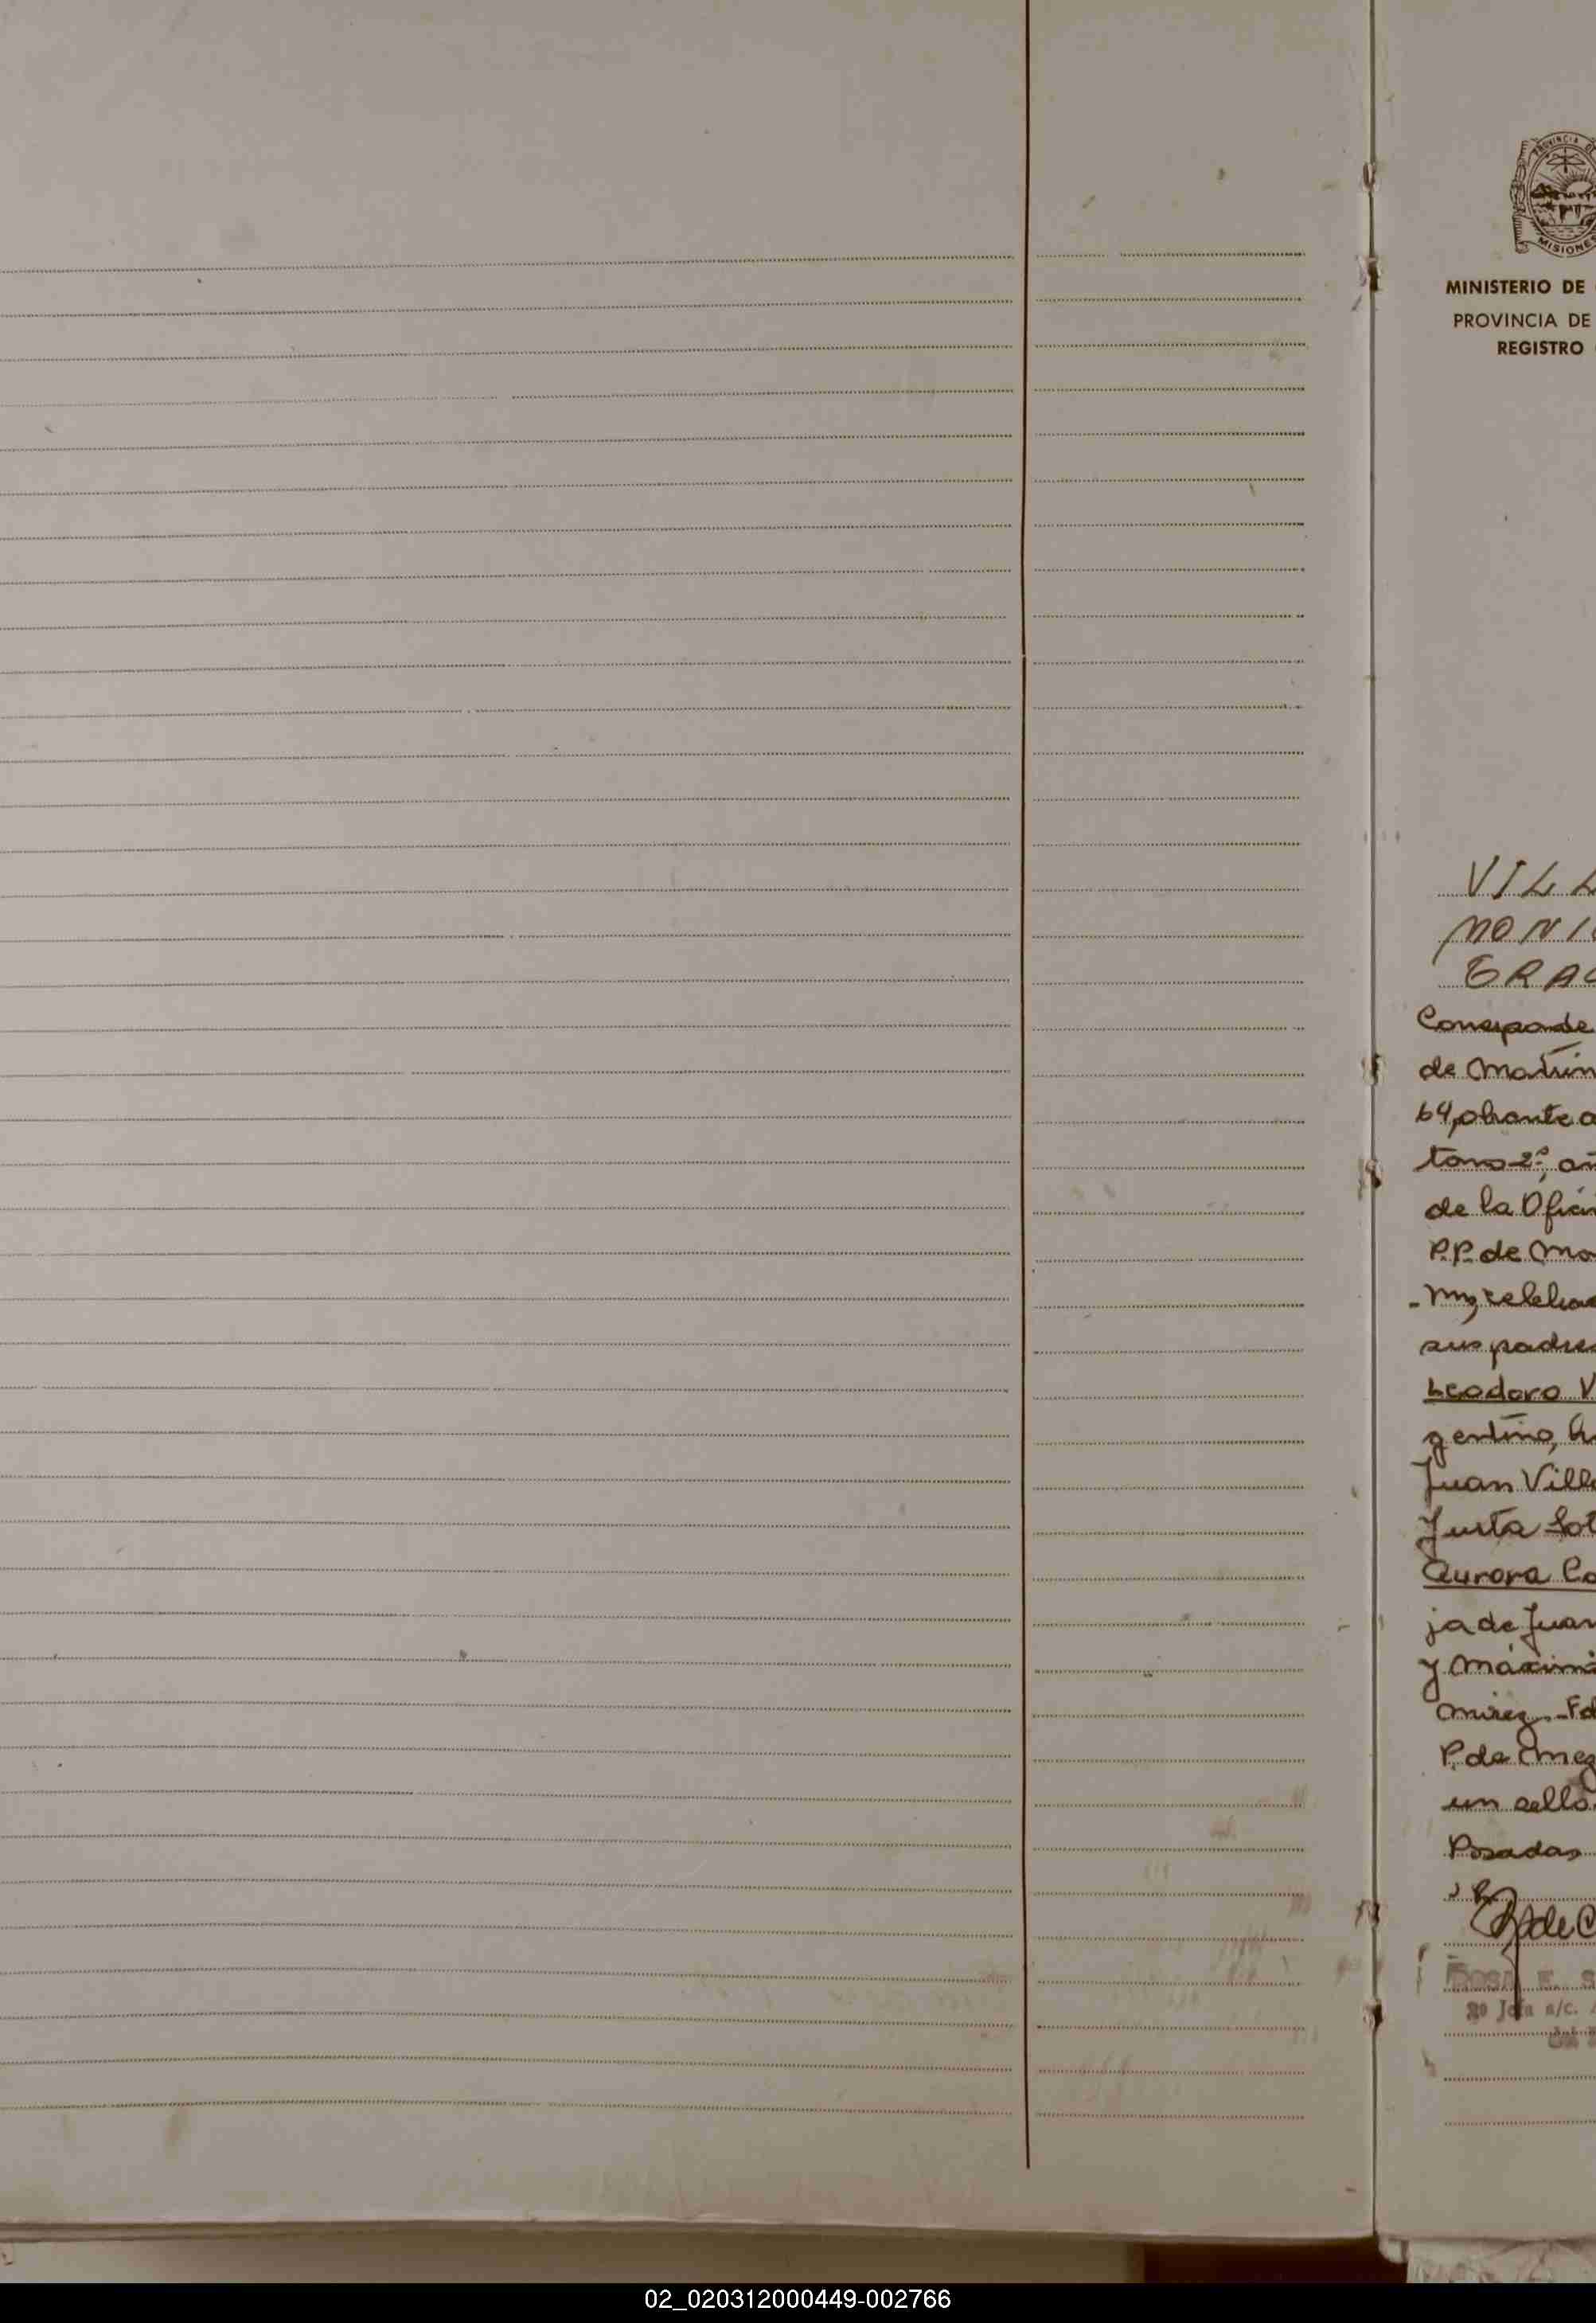 PROVINCIA DE
MISIONES
MINISTERIO DE
PROVINCIA DE
REGISTRO
VILL
MONI
GRAC
Corresponde
de Matrim
64, obrante a
tomo 2º, añ
de la Ofici
P.P. de Ma
sus padres
Leodoro V
gentino, h
Juan Villa
Justa Sot
Aurora Ca
ja de Juan
y Máxim
mirez.-Fd
P. de Amez
un sello.
Posadas
ROSA E. S
2º Jefa a/c.
del
02_020312000449-002766